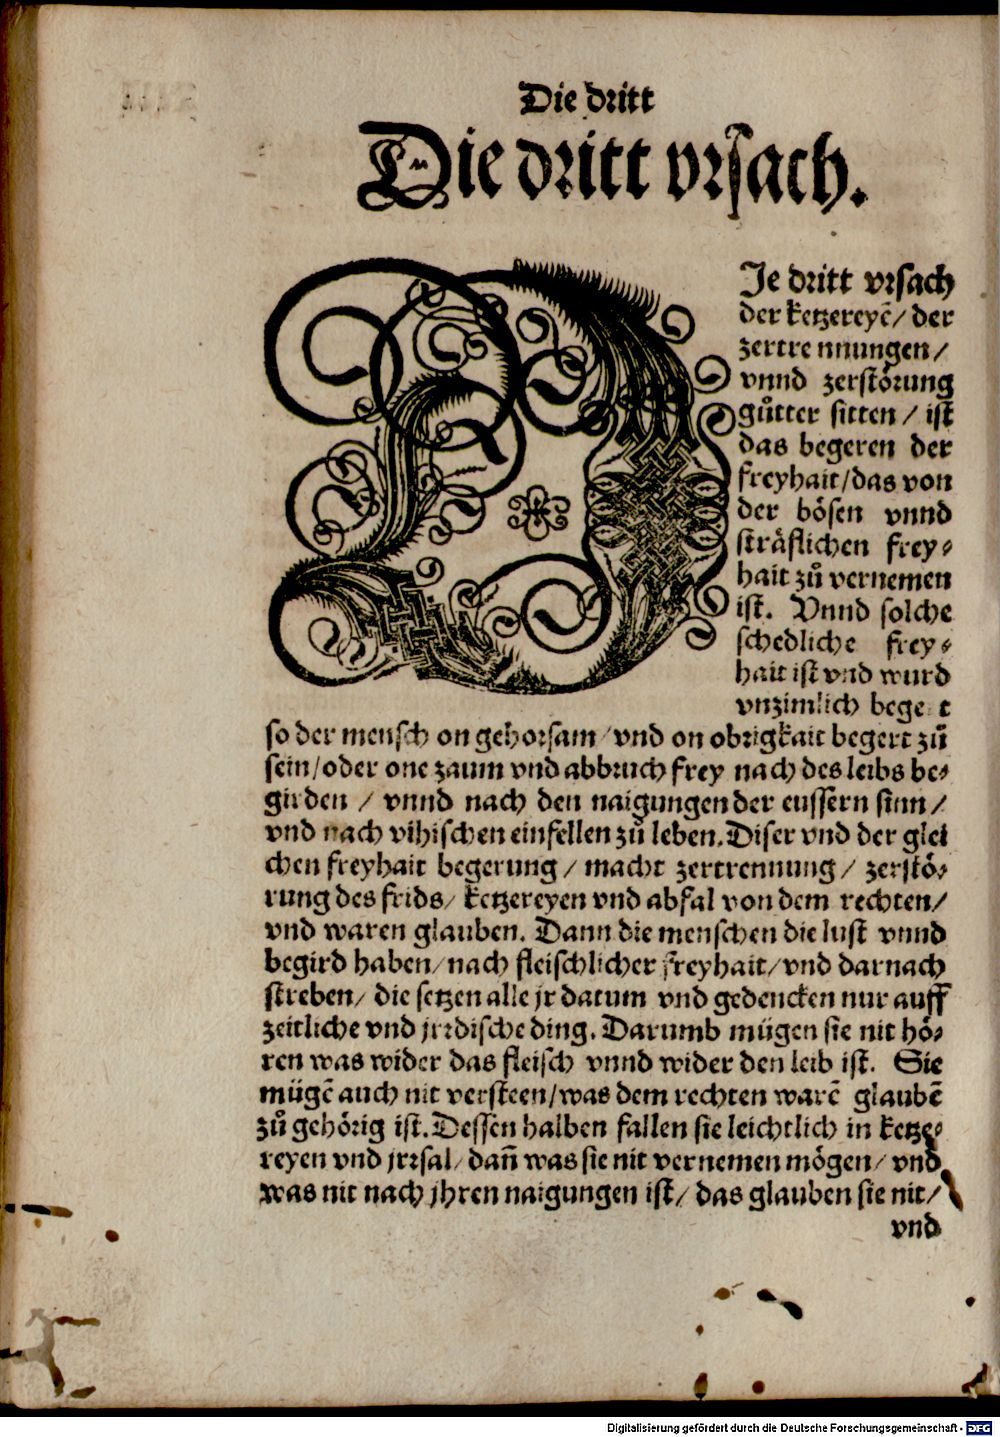 Die dritt
Die dritt vrsach.
DJe dritt vrsach
der ketzereyē/ der
zertrennungen/
vnnd zerstörung
gůtter sitten/ ist
das begeren der
freyhait/das von
der bösen vnnd
sträflichen frey⸗
hait zů vernemen
ist. Vnnd solche
schedliche frey⸗
hait ist vnd wurd
vnzimlich begert
so der mensch on gehorsam/vnd on obrigkait begert zů
sein/oder one zaum vnd abbruch frey nach des leibs be⸗
girden / vnnd nach den naigungen der eussern sinn/
vnd nach vihischen einfellen zů leben. Diser vnd der glei
chen freyhait begerung/ macht zertrennung/ zerstö⸗
rung des frids/ ketzereyen vnd abfal von dem rechten/
vnd waren glauben. Dann die menschen die lust vnnd
begird haben/nach fleischlicher freyhait/vnd darnach
streben/ die setzen alle jr datum vnd gedencken nur auff
zeitliche vnd jrrdische ding. Darumb mügen sie nit hö⸗
ren was wider das fleisch vnnd wider den leib ist. Sie
mügē auch nit versteen/was dem rechten warē glaubē
zů gehörig ist. Dessen halben fallen sie leichtlich in ketze⸗
reyen vnd jrrsal/ dañ was sie nit vernemen mögen/ vnd
was nit nach jhren naigungen ist/ das glauben sie nit/
vnd
Digitalisierung gefördert durch die Deutsche Forschungsgemeinschaft - DFG